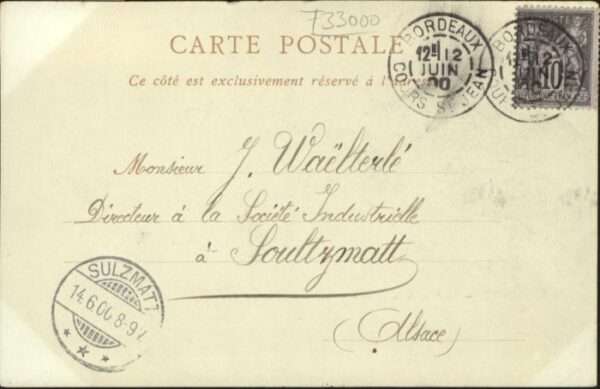 F33000
CARTE POSTALE
Ce côté est exclusivement réservé à l'a
BORDEAUX
12E 12
JUIN
00
COURS ST JEAN
BORDEAUX
12
10
Monsieur J. Waëlterlé
Directeur à la Société Industrielle
à Soultzmatt
(Alsace)
SULZMATT
14.6.00 8-9V